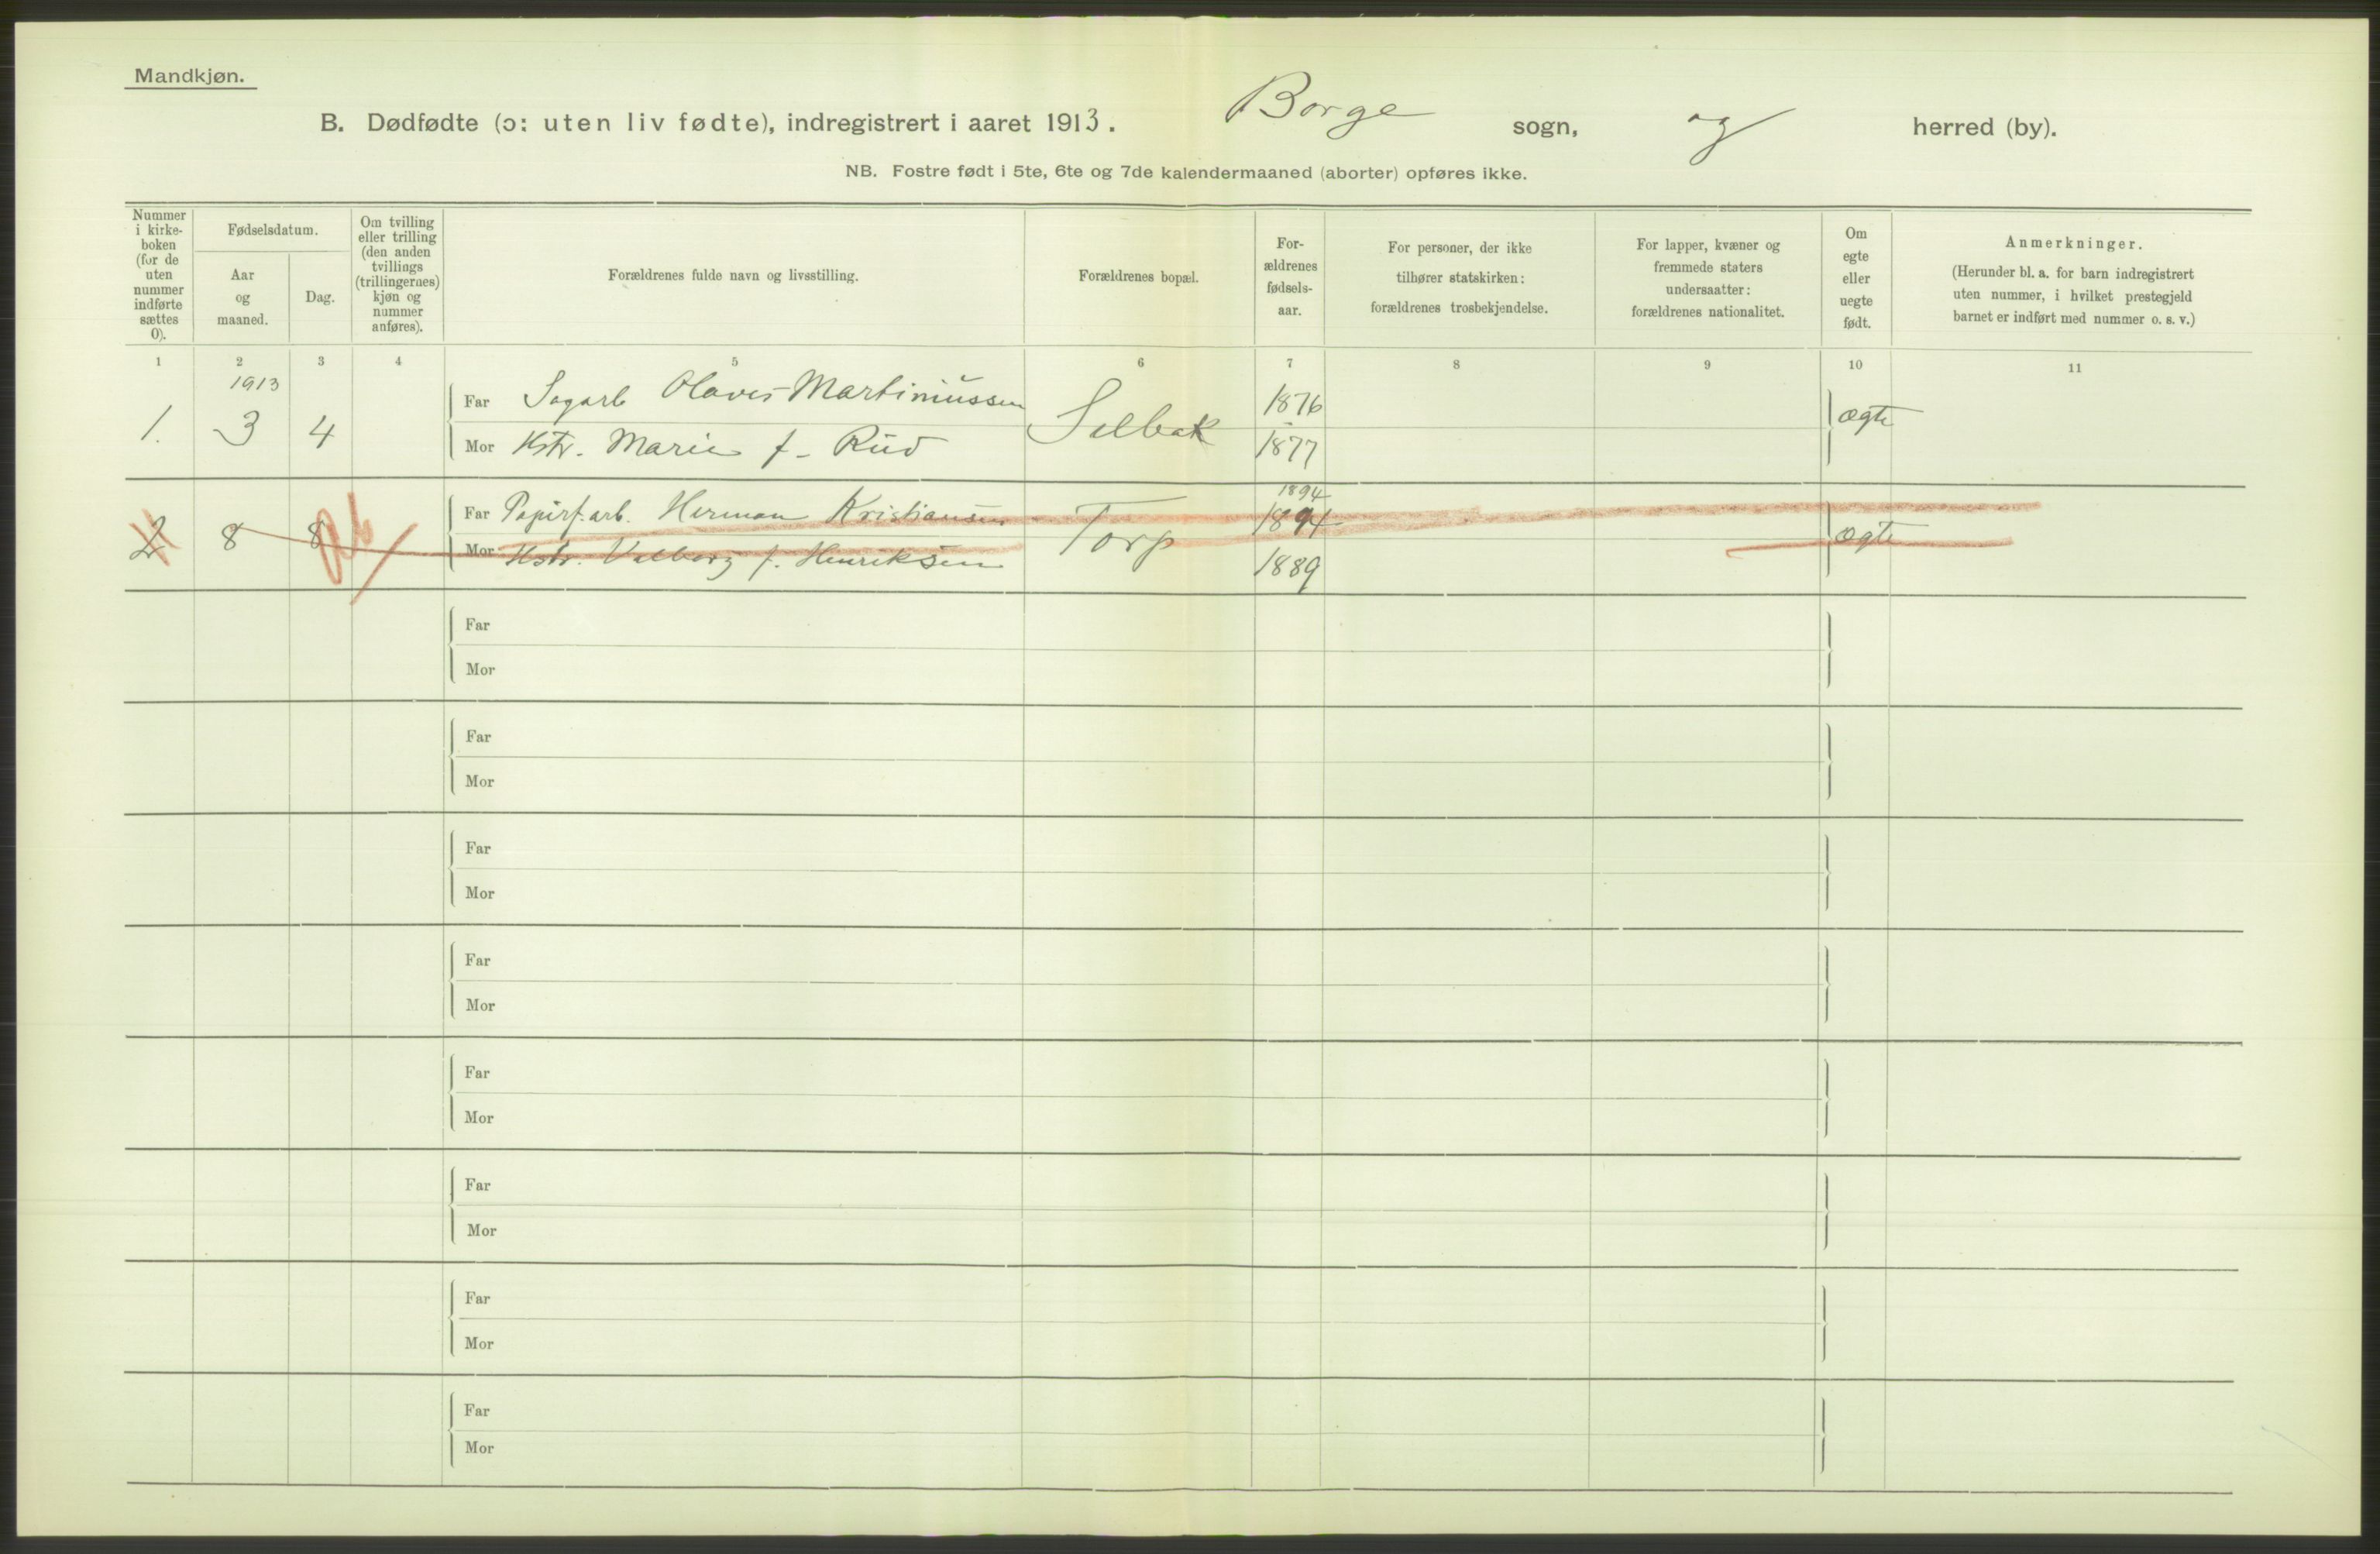 Mandkjøn.
B. Dødfødte (ɔ: uten liv fødte), indregistrert i aaret 1913. Borge sogn, og herred (by).
NB. Fostre født i 5te, 6te og 7de kalendermaaned (aborter) opføres ikke.
Nummer
i kirke-
boken
(for de
uten
nummer
indførte
sættes
0).
Fødselsdatum.
Aar
og
maaned.
Dag.
Om tvilling
eller trilling
(den anden
tvillings
(trillingernes)
kjøn og
nummer
anføres).
Forældrenes fulde navn og livsstilling.
Forældrenes bopæl.
For-
ældrenes
fødsels-
aar.
For personer, der ikke
tilhører statskirken:
forældrenes trosbekjendelse.
For lapper, kvæner og
fremmede staters
undersaatter:
forældrenes nationalitet.
Om
egte
eller
uegte
født.
Anmerkninger.
(Herunder bl. a. for barn indregistrert
uten nummer, i hvilket prestegjeld
barnet er indført med nummer o. s. v.)
1 2 3 4 5 6 7 8 9 10 11
1913
1. 3 4
Far Sagarb Olaves Martiniussen Selbak 1876 ægte
Mor Hstr. Marie f. Rud 1877
1894
2 8 8
Far Papirf.arb. Herman Kristiansen Torp 1894 ægte
Mor Hstr. Valborg f. Henriksen 1889
Far
Mor
Far
Mor
Far
Mor
Far
Mor
Far
Mor
Far
Mor
Far
Mor
Far
Mor